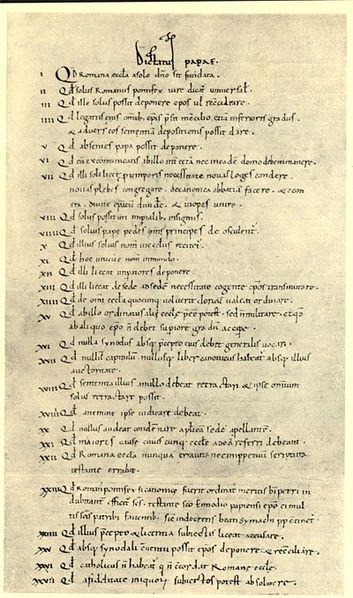 Dictatus papae.
I Qd Romana eccla a solo dno sit fundata.
II Qd solus Romanus pontifex iure dicat universal.
III Qd ille solus possit deponere epos vl reconciliare.
IIII Qd legatus eius omib. epis psit in concilio etiam inferioris gradus
& adversus eos sententiam depositionis possit dare.
V Qd absentes papa possit deponere.
VI Qd cu excommunicatis ab illo int cetera nec in eade domo debem manere.
VII Qd illi soli licet p temporis necessitate novas leges condere
novas plebes congregare. de canonica abbatia facere. & e contra
divite epatu divide. & inopes unire.
VIII Qd solus possit uti imperialib. insigniis.
VIIII Qd solius pape pedes oms principes deosculent.
X Qd illius solius nom in ecclis recitet.
XI Qd hoc unicu e nom in mundo.
XII Qd illi liceat imperatores deponere.
XIII Qd illi liceat de sede ad sede necessitate cogente epos transmutare.
XIIII Qd de omi eccla quocunq voluerit clericu valeat ordinare.
XV Qd ab illo ordinatus alii eccle pee potest. sed n militare. et qd
ab aliquo epo n debet supiore gradu accipe.
XVI Qd nulla synodus absq pcepto eius debet generalis vocari.
XVII Qd nullu capitulu nullusq liber canonicus habeat absq illius
auctoritate.
XVIII Qd sententia illius a nullo debeat retractari & ipse omnium
solus retractare possit.
XVIIII Qd a nemine ipse iudicari debeat.
XX Qd nullus audeat condemnare aplica sede apellante.
XXI Qd maiores cause cuiuscunq eccle ad ea referri debeant.
XXII Qd Romana eccla nunqua erravit nec imppetuu scriptura
testante errabit.
XXIII Qd Romanus pontifex si canonice fuerit ordinatus meritis b. petri in
dubitanter efficit scs. testante sco Ennodio papiensi epo ei multis
scis patribus faventib. sic in decretis beati Symachi pp continet.
XXIIII Qd illius pcepto & licentia subiectis liceat accusare.
XXV Qd absq synodali conventu possit epos deponere & reconciliare.
XXVI Qd catholicus n habeat q n concordat Romane eccle.
XXVII Qd a fidelitate iniquor subiectos potest absolvere.